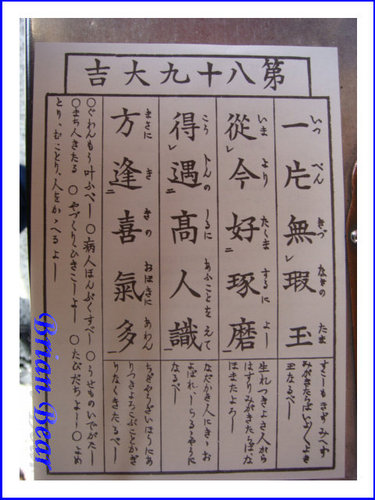 第八十九大吉
一片無瑕玉
いっぺんきづなきのたま
從今好琢磨
いまよりたくまするによし
得遇高人識
こうじんのしるにあふことをえて
方逢喜氣多
まさにききのおほきにあわん
玉なるべし
生れつきよき人がら
はまたよろし
なだかき人にきゝお
よばれしらるゝやうに
なるべし
りつきよろこぶことかぎ
りなくきたるべし
○ぐわんもう叶ふべし ○病人ほんぷくすべし ○うせものいでがたし
○まち人きたる ○やづくりひきこしよし ○たびだちよし ○よめ
とり、むことり、人をかゝへるよし
Brian Bear